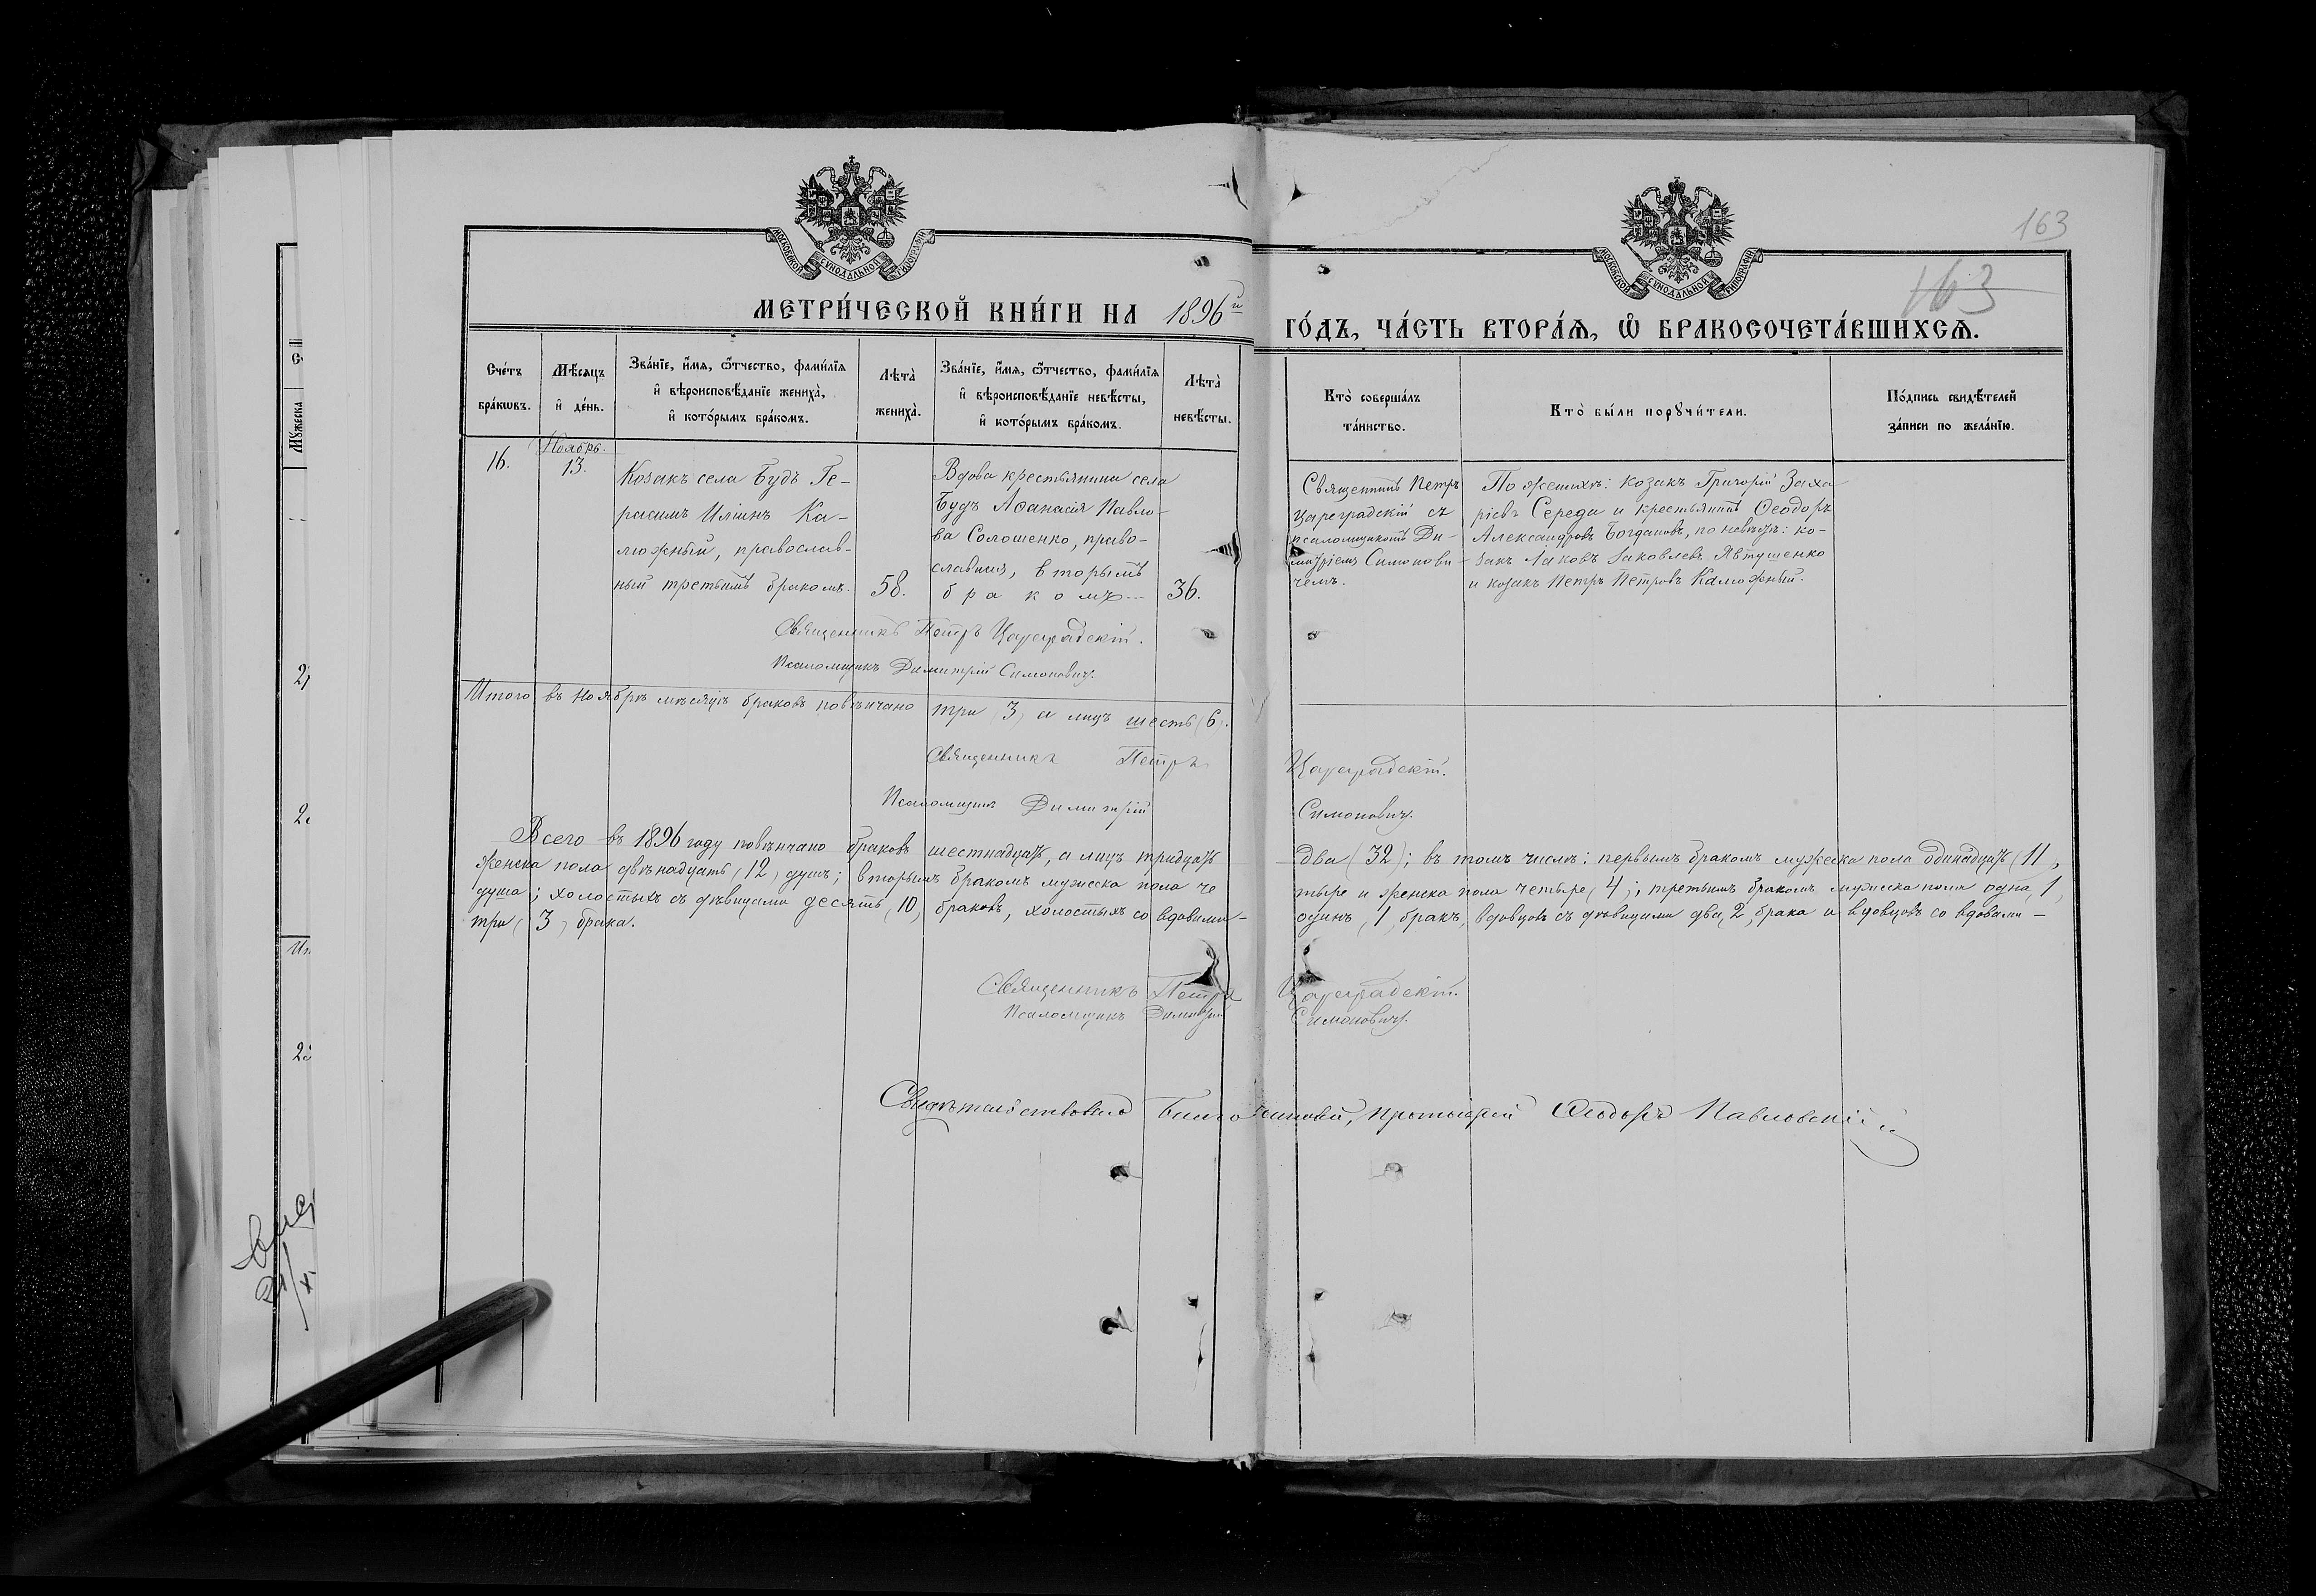 163
163
МОСКОВСКОЙ СУНОДАЛЬНОЙ ТИПОГРАФІИ
МОСКОВСКОЙ СУНОДАЛЬНОЙ ТИПОГРАФІИ
МЕТРИ́ЧЕСКОЙ КНИ́ГИ НА 1896й ГО́ДЪ, ЧА́СТЬ ВТОРА́Ѧ, Ѽ БРАКОСОЧЕТА́ВШИХСѦ.
Сче́тъ бра́кѡвъ.
Мѣ́сяцъ и де́нь.
Зва́нїе, и҆́мя, ѻ҆́тчество, фами́лїя и҆ вѣроисповѣ́данїе жениха̀, и҆ кото́рымъ бра́комъ.
Лѣта̀ жениха̀.
Зва́нїе, и҆́мя, ѻ҆́тчество, фами́лїя и҆ вѣроисповѣ́данїе невѣ́сты, и҆ кото́рымъ бра́комъ.
Лѣта̀ невѣ́сты.
Кто̀ соверша́лъ та́инство.
Кто̀ бы́ли порꙋчи́тели.
По́дпись свидѣ́телей за́писи по жела́нїю.
16.
Ноябрь.
13.
Козакъ села Будъ Ге-
расимъ Иліинъ Ка-
люжный, православ-
ный третьимъ бракомъ.
58.
Вдова крестьянина села
Будъ Аѳанасія Павло-
ва Солошенко, право-
славная, вторымъ
бракомъ--
36.
Священникъ Петръ
Цареградскій съ
псаломщикомъ Ди-
митріемъ Симонови-
чемъ.
По женихѣ: козакъ Григорій Заха
ріевъ Середа и крестьянинъ Ѳеодоръ
Александровъ Богдановъ, по невѣстѣ: ко-
закъ Іаковъ Іаковлевъ Явтушенко
и козакъ Петръ Петровъ Калюжный.
Священникъ Петръ Цареградскій.
Псаломщикъ Димитрій Симоновичъ.
Итого въ Ноябрѣ мѣсяцѣ браковъ повѣнчано три (3) а лицъ шесть (6).
Священникъ Петръ Цареградскій.
Псаломщикъ Димитрій Симоновичъ.
Всего въ 1896 году повѣнчано браковъ шестнадцать, а лицъ тридцать два (32); въ томъ числѣ: первымъ бракомъ мужеска пола одинадцать (11),
женска пола двѣнадцать (12) душъ; вторымъ бракомъ мужеска пола че тыре и женска пола четыре (4); третьимъ бракомъ мужеска пола одна (1)
душа; холостыхъ съ дѣвицами десять (10) браковъ, холостыхъ со вдовами- одинъ (1) бракъ, вдовцовъ съ дѣвицами два (2) брака и вдовцовъ со вдовами -
три (3) брака.
Священникъ Петръ Цареградскій.
Псаломщикъ Димитрій Симоновичъ.
Свидѣтельствовалъ Благочинный, Протоіерей Ѳеодоръ Павловскій
Мꙋжеска